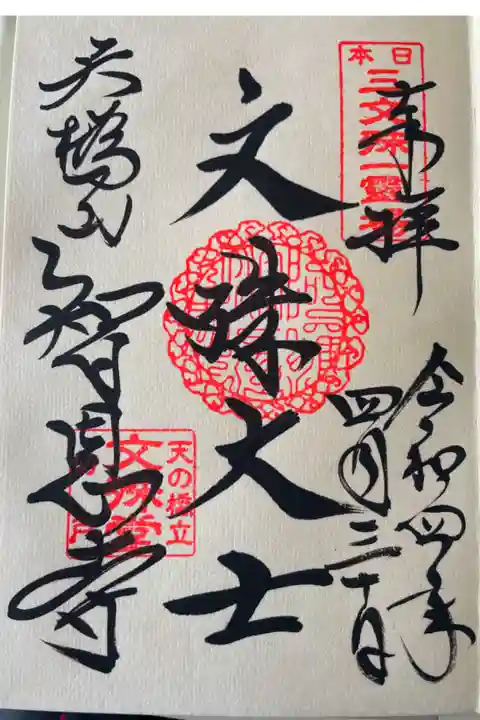 奉拝
令和四年
四月三十日
日本
三文殊一霊場
文殊大士
天橋山
智恩寺
天の橋立
文殊堂